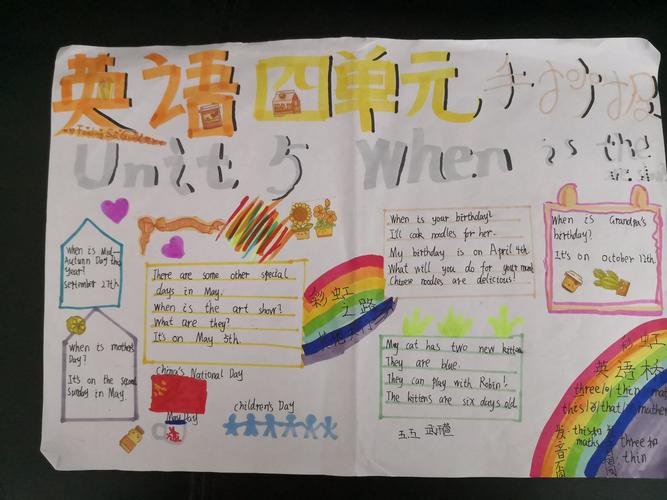 英语四单元手抄报
Feeling So Good
Unit 5 When is the
When is Mid-
Autumn Day this
Year?
September 27th.
When is mother's
Day?
It's on the second
Sunday in May.
There are some other special
days in May.
When is the art show?
What are they?
It's on May 5th.
China's National Day
May Day
children's Day
彩虹
之路
When is your birthday?
I'll cook noodles for her.
My birthday is on April 4th
What will you do for your mum
Chinese noodles are delicious!
When is Grandpa's
birthday?
It's on October 12th.
My cat has two new kittens
They are blue.
They can play with Robin!
The kittens are six days old.
五五
彩虹
英语桥
three/θ/ thin
this/ð/that/ð/
发音 this和
maths three和
thin